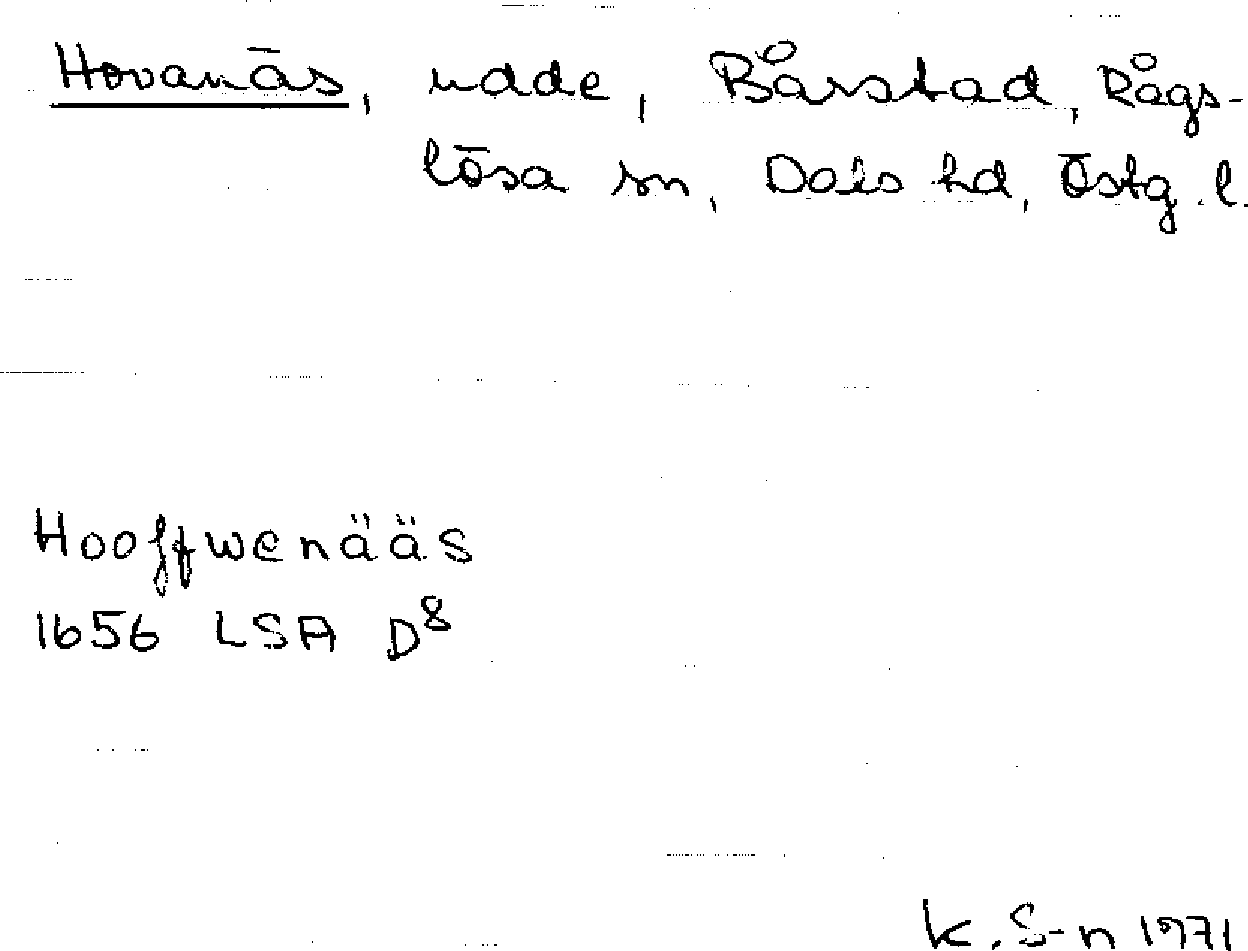 Hovanäs, udde, Bårstad, Rågs-
lösa sn, Dals hd, Östg. l.
Hooffwenääs
1656 LSA D8
K. S-n 1971